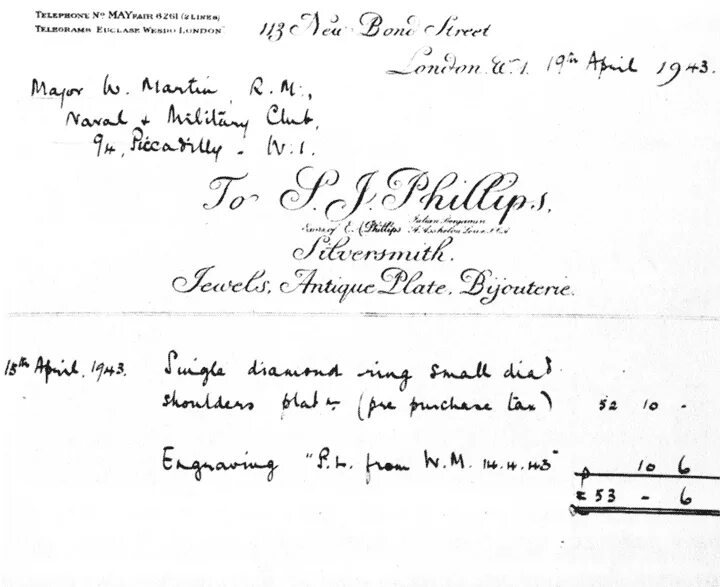 TELEPHONE No MAYFAIR 6261 (2 LINES)
TELEGRAMS EUCLASE WESDO LONDON
113 New Bond Street
London. W.1. 19th April 1943.
Major W. Martin, R.M.,
Naval & Military Club,
94, Piccadilly - W.1.
To S. J. Phillips,
Execs of E. A. Phillips
Julian Benjamin
Silversmith.
Jewels, Antique Plate, Bijouterie.
15th April. 1943. Single diamond ring small diad
shoulders platm (pre purchase tax) 52 10 -
Engraving "P.L. from W.M. 14.4.43" 10 6
£ 53 - 6